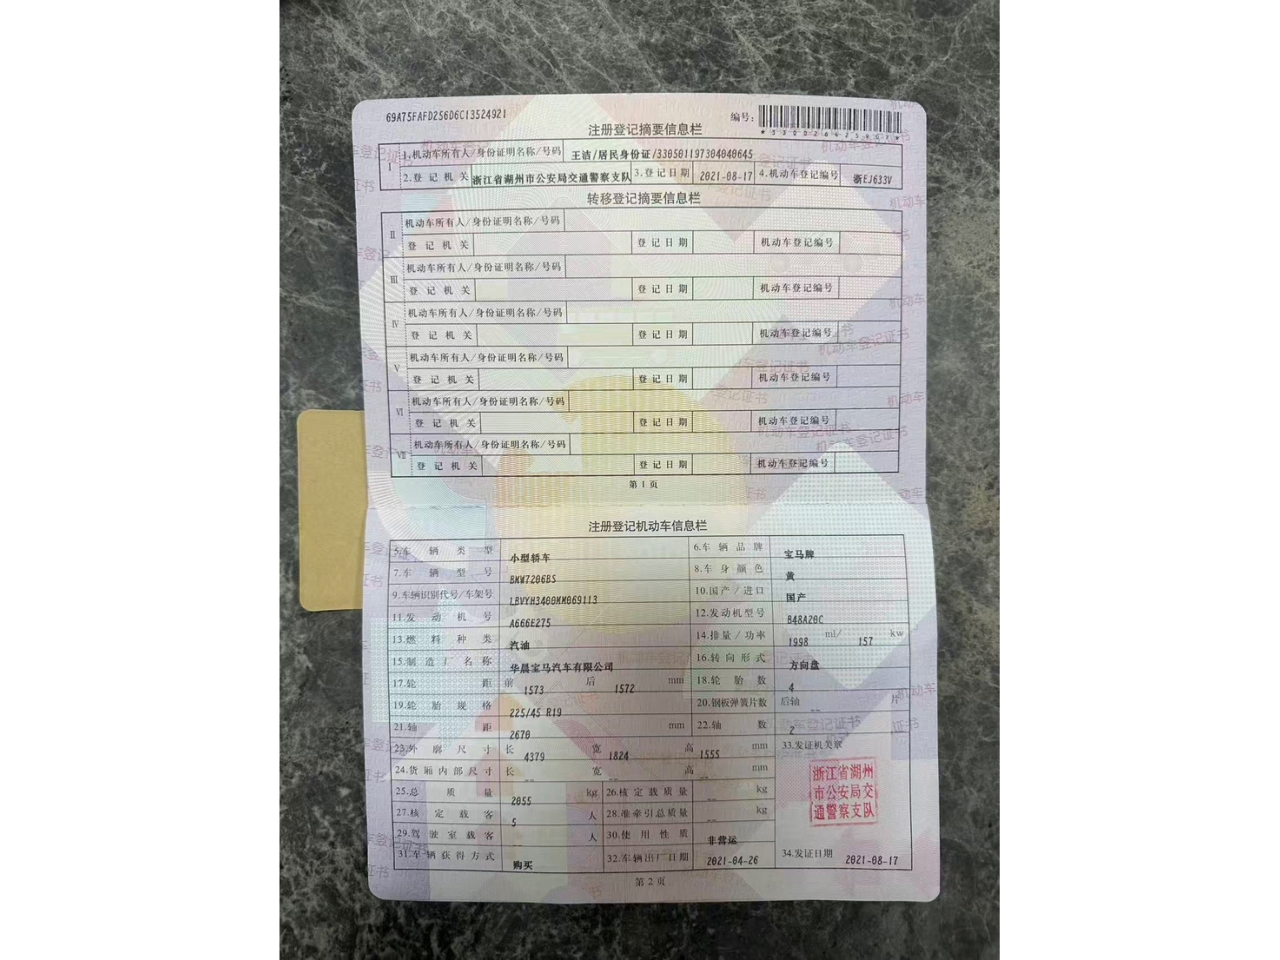 69A75FAFD256D6C13524921
编号:
注册登记摘要信息栏
I 1.机动车所有人/身份证明名称/号码 王洁/居民身份证/330501197304040645
2.登记机关 浙江省湖州市公安局交通警察支队 3.登记日期 2021-08-17 4.机动车登记编号 浙EJ633V
转移登记摘要信息栏
II 机动车所有人/身份证明名称/号码
登记机关 登记日期 机动车登记编号
III 机动车所有人/身份证明名称/号码
登记机关 登记日期 机动车登记编号
IV 机动车所有人/身份证明名称/号码
登记机关 登记日期 机动车登记编号
V 机动车所有人/身份证明名称/号码
登记机关 登记日期 机动车登记编号
VI 机动车所有人/身份证明名称/号码
登记机关 登记日期 机动车登记编号
VII 机动车所有人/身份证明名称/号码
登记机关 登记日期 机动车登记编号
第1页
注册登记机动车信息栏
5.车辆类型 小型轿车 6.车辆品牌 宝马牌
7.车辆型号 BMW7206BS 8.车身颜色 黄
9.车辆识别代号/车架号 LBVYH3400MM069113 10.国产/进口 国产
11.发动机号 A666E275 12.发动机型号 B48A20C
13.燃料种类 汽油 14.排量/功率 1998 ml/ 157 kw
15.制造厂名称 华晨宝马汽车有限公司 16.转向形式 方向盘
17.轮距 前 1573 后 1572 mm 18.轮胎数 4
19.轮胎规格 225/45 R19 20.钢板弹簧片数 后轴 -- 片
21.轴距 2670 mm 22.轴数 2
23.外廓尺寸 长 4379 宽 1824 高 1555 mm 33.发证机关章
24.货厢内部尺寸 长 -- 宽 -- 高 -- mm
浙江省湖州市公安局交通警察支队
25.总质量 2055 kg 26.核定载质量 -- kg
27.核定载客 5 人 28.准牵引总质量 -- kg
29.驾驶室载客 -- 人 30.使用性质 非营运
31.车辆获得方式 购买 32.车辆出厂日期 2021-04-26 34.发证日期 2021-08-17
第2页